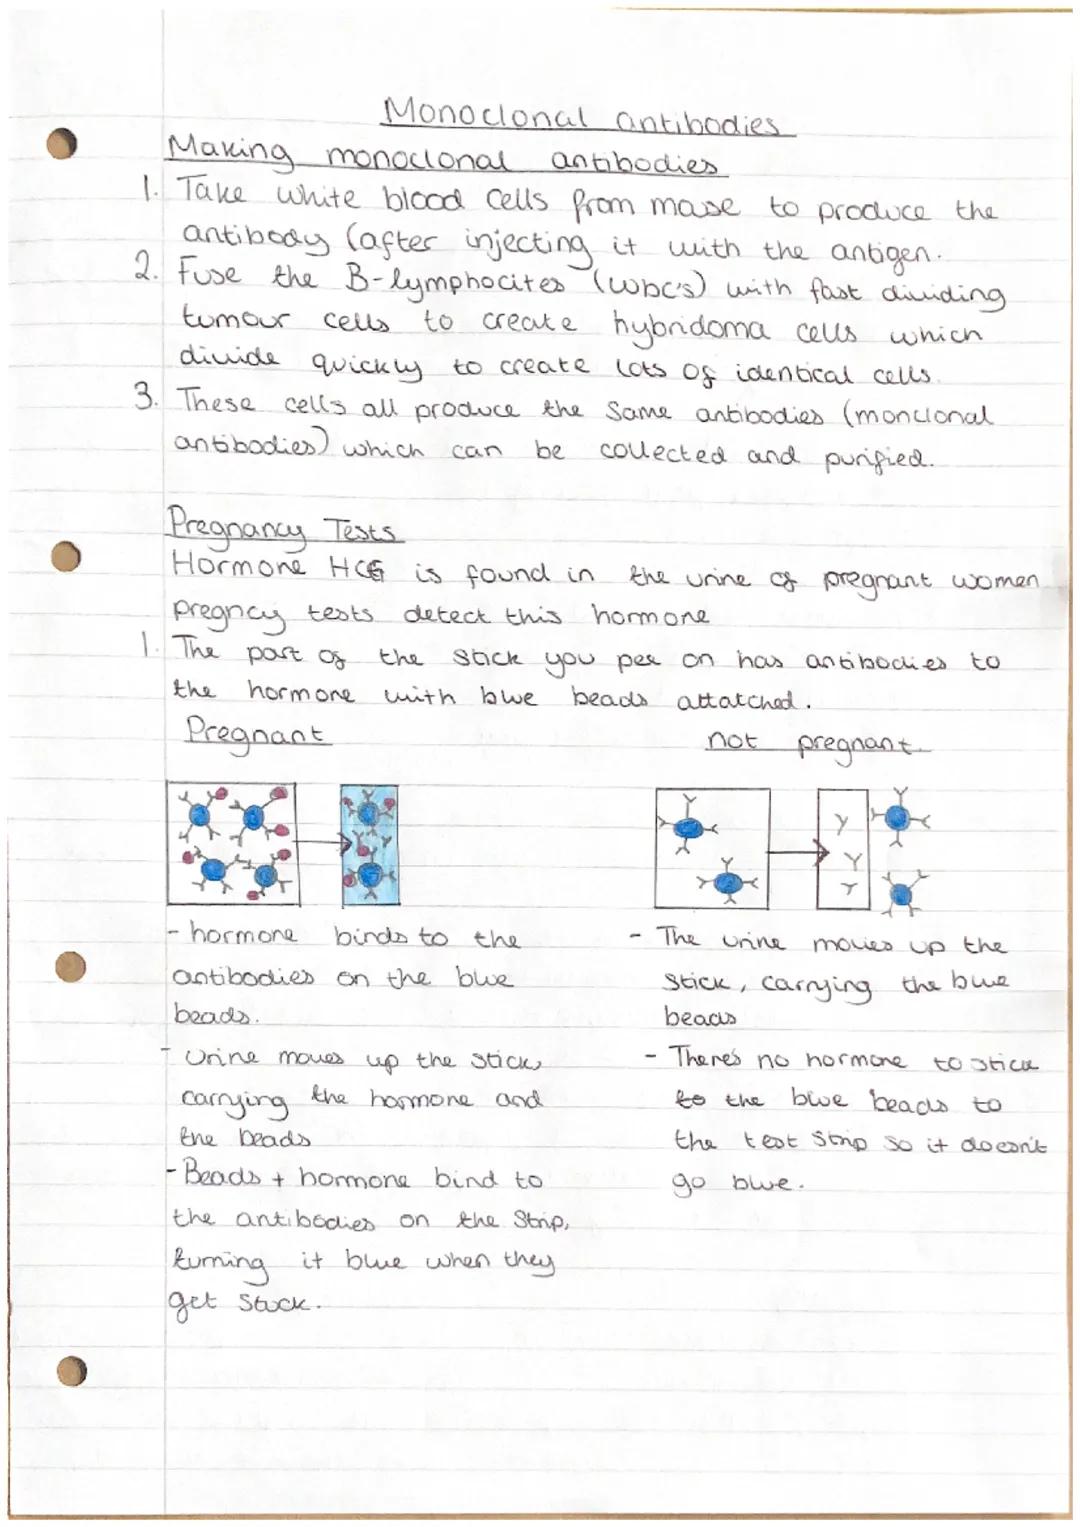 Monoclonal antibodies
Making monoclonal antibodies
1. Take white blood cells from mouse to produce the
antibody (after injecting it with the antigen.
2. Fuse the B-lymphocites (wbc's) with fast dividing
tumour cells to create hybridoma cells which
divide quickly to create lots of identical cells.
3. These cells all produce the same antibodies (monclonal
antibodies) which can be collected and purified.
Pregnancy Tests
Hormone HCG is found in the urine of pregnant women
pregncy tests detect this hormone
1. The part of the stick you pee on has antibodies to
the hormone with blue beads attatched.
Pregnant
- hormone binds to the
antibodies on the blue
beads.
- Urine moves up the stick,
carrying the hormone and
the beads
- Beads + hormone bind to
the antibodies on the strip,
turning it blue when they
get stuck.
not pregnant.
- The urine moves up the
stick, carrying the blue
beads
- There's no hormone to stick
to the blue beads to
the test strip so it doesn't
go blue.